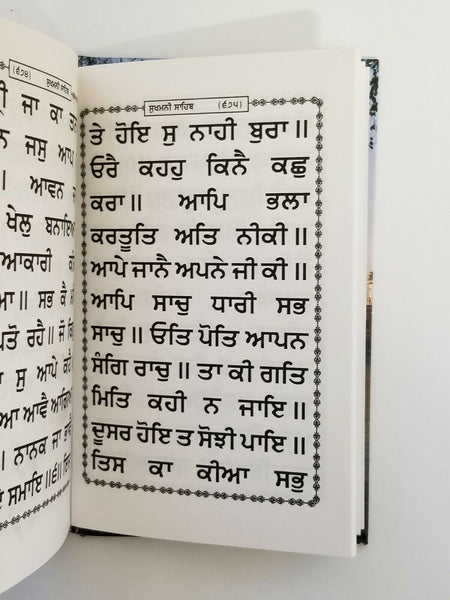 (੬੭੪) ਸੁਖਮਨੀ ਸਾਹਿਬ
ਜਾ ਕਾ
ਜਸੁ ਆਪ
॥ ਆਵਨ
ਖੇਲੁ ਬਨਾਇ
ਆਕਾਰੀ
॥ ਸਭ ਕੈ
ਰਹੈ॥ ਜੋ
ਸੁ ਆਪੇ
ਆ ਆਵੈ
॥ ਨਾਨਕ ਜਾ
ਸਮਾਇ॥੬॥
ਸੁਖਮਨੀ ਸਾਹਿਬ (੬੭੫)
ਤੇ ਹੋਇ ਸੁ ਨਾਹੀ ਬੁਰਾ॥
ਓਰੈ ਕਹਹੁ ਕਿਨੈ ਕਛੁ
ਕਰਾ॥ ਆਪਿ ਭਲਾ
ਕਰਤੂਤਿ ਅਤਿ ਨੀਕੀ॥
ਆਪੇ ਜਾਨੈ ਅਪਨੇ ਜੀ ਕੀ॥
ਆਪਿ ਸਾਚੁ ਧਾਰੀ ਸਭ
ਸਾਚੁ॥ ਓਤਿ ਪੋਤਿ ਆਪਨ
ਸੰਗਿ ਰਾਚੁ॥ ਤਾ ਕੀ ਗਤਿ
ਮਿਤਿ ਕਹੀ ਨ ਜਾਇ॥
ਦੂਸਰ ਹੋਇ ਤ ਸੋਝੀ ਪਾਇ॥
ਤਿਸ ਕਾ ਕੀਆ ਸਭੁ